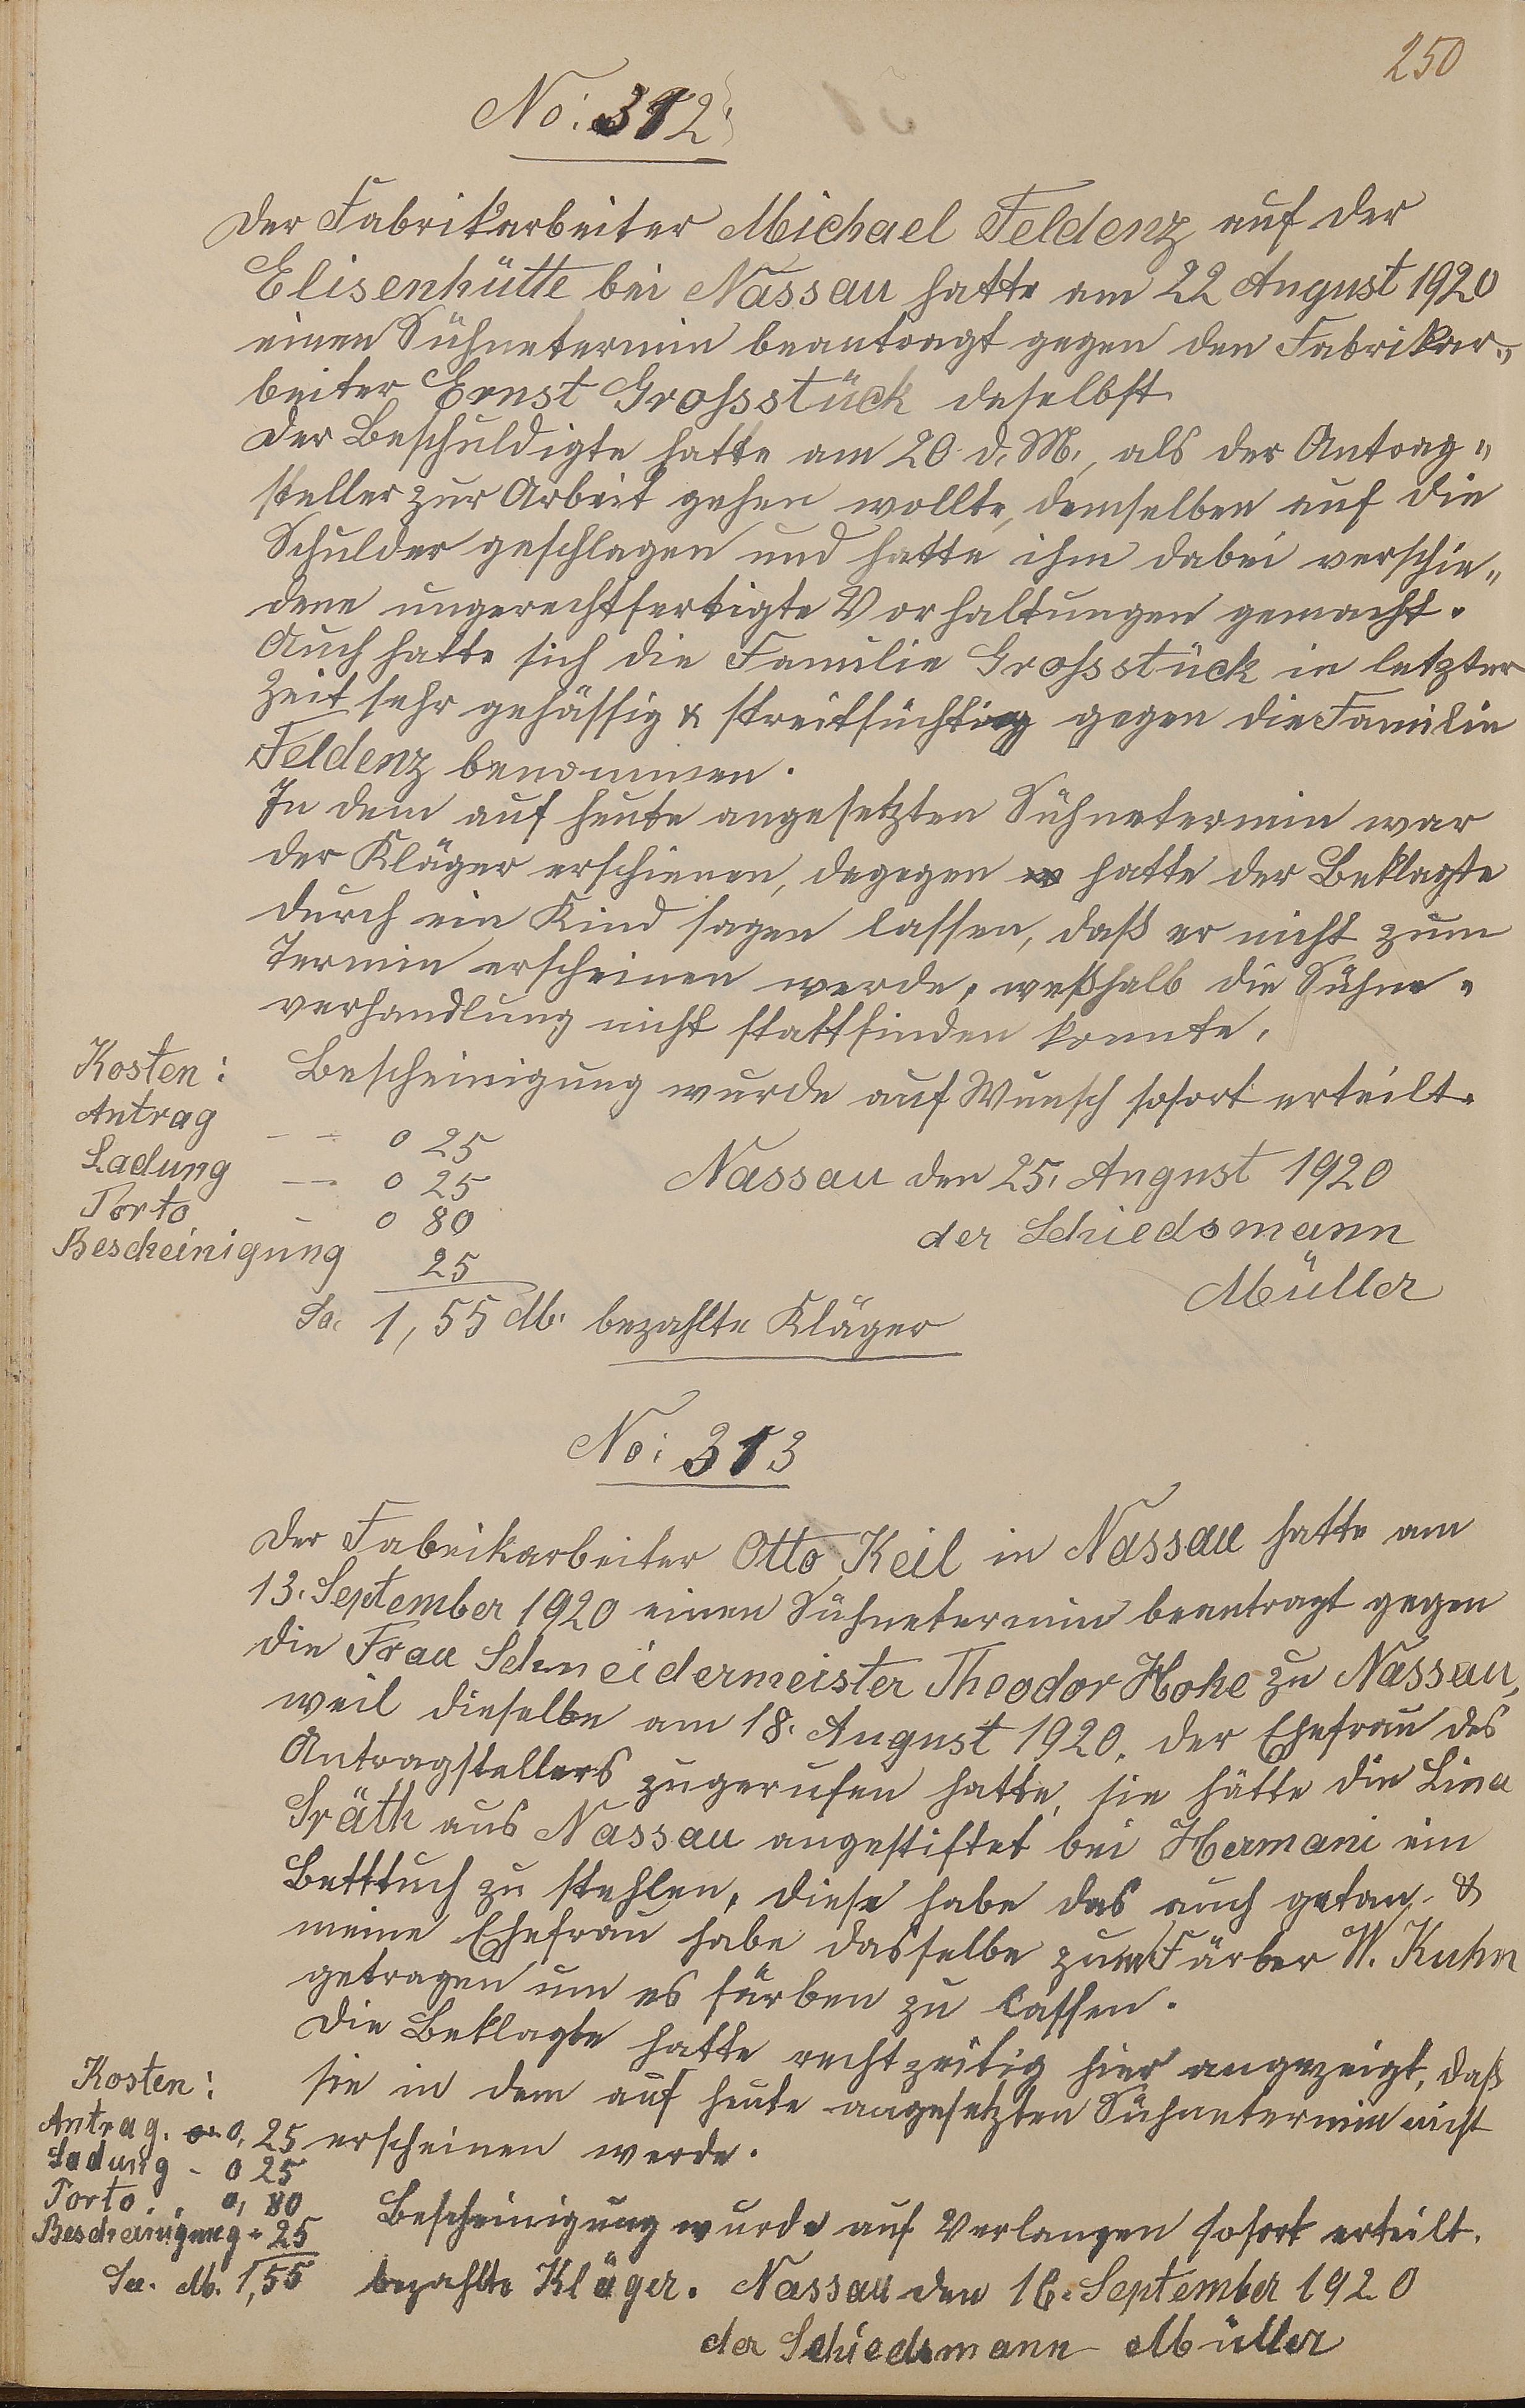 250
No: 312.
Der Fabrikarbeiter Michael Feldenz auf der
Elisenhütte bei Nassau hatte am 22 August 1920
einen Sühnetermin beantragt gegen den Fabrikar„
beiter Ernst Großstück deselbst.
Der Beschuldigte hatte am 20. d. M., als der Antrag„
steller zur Arbeit gehen wollte, demselben auf die
Schulder geschlagen und hatte ihm dabei verschie„
dene ungerechtfertigte Vorhaltungen gemacht.
Auch hatte sich die Familie Großstück in letzter
Zeit sehr gehässig & streitsüchtig gegen die Familie
Feldenz benommen.
In dem auf heute angesetzten Sühnetermin war
der Kläger erschienen, degegen hatte der Beklagte
durch ein Kind sagen lassen, daß er nicht zum
Termin erscheinen werde, weßhalb die Sühne„
verhandlung nicht stattfinden konnte.
Bescheinigung wurde auf Wunsch sofort erteilt.
Kosten:
Antrag — — 0 25
Ladung — 0 25
Porto - 0 80
Bescheinigung 25
Sa. 1,55 M. bezahlte Kläger
Nassau den 25. August 1920
der Schiedsmann
Müller
No: 313
Der Fabrikarbeiter Otto Keil in Nassau hatte am
13. September 1920 einen Sühnetermin beantragt gegen
die Frau Schneidermeister Theodor Hohe zu Nassau,
weil dieselbe am 18. August 1920. der Ehefrau des
Antragstellers zugerufen hatte, sie hätte die Lina
Sräth aus Nassau angestiftet bei Hermani ein
Betttuch zu stehlen, diese habe das auch getan &
meine Ehefrau habe dasselbe zum Färber W. Kuhn
getragen um es färben zu lassen.
Die Beklagte hatte rechtzeitig hier angezeigt, daß
sie in dem auf heute angesetzten Sühnetermin nicht
erscheinen werde.
Kosten:
Antrag. 0,25
Ladung - 0 25
Porto. . 0,80
Bescheinigung - 25
Sa. M. 1,55
Bescheinigung wurde auf Verlangen sofort erteilt.
bezahlte Kläger. Nassau den 16. September 1920
der Schiedsmann Müller